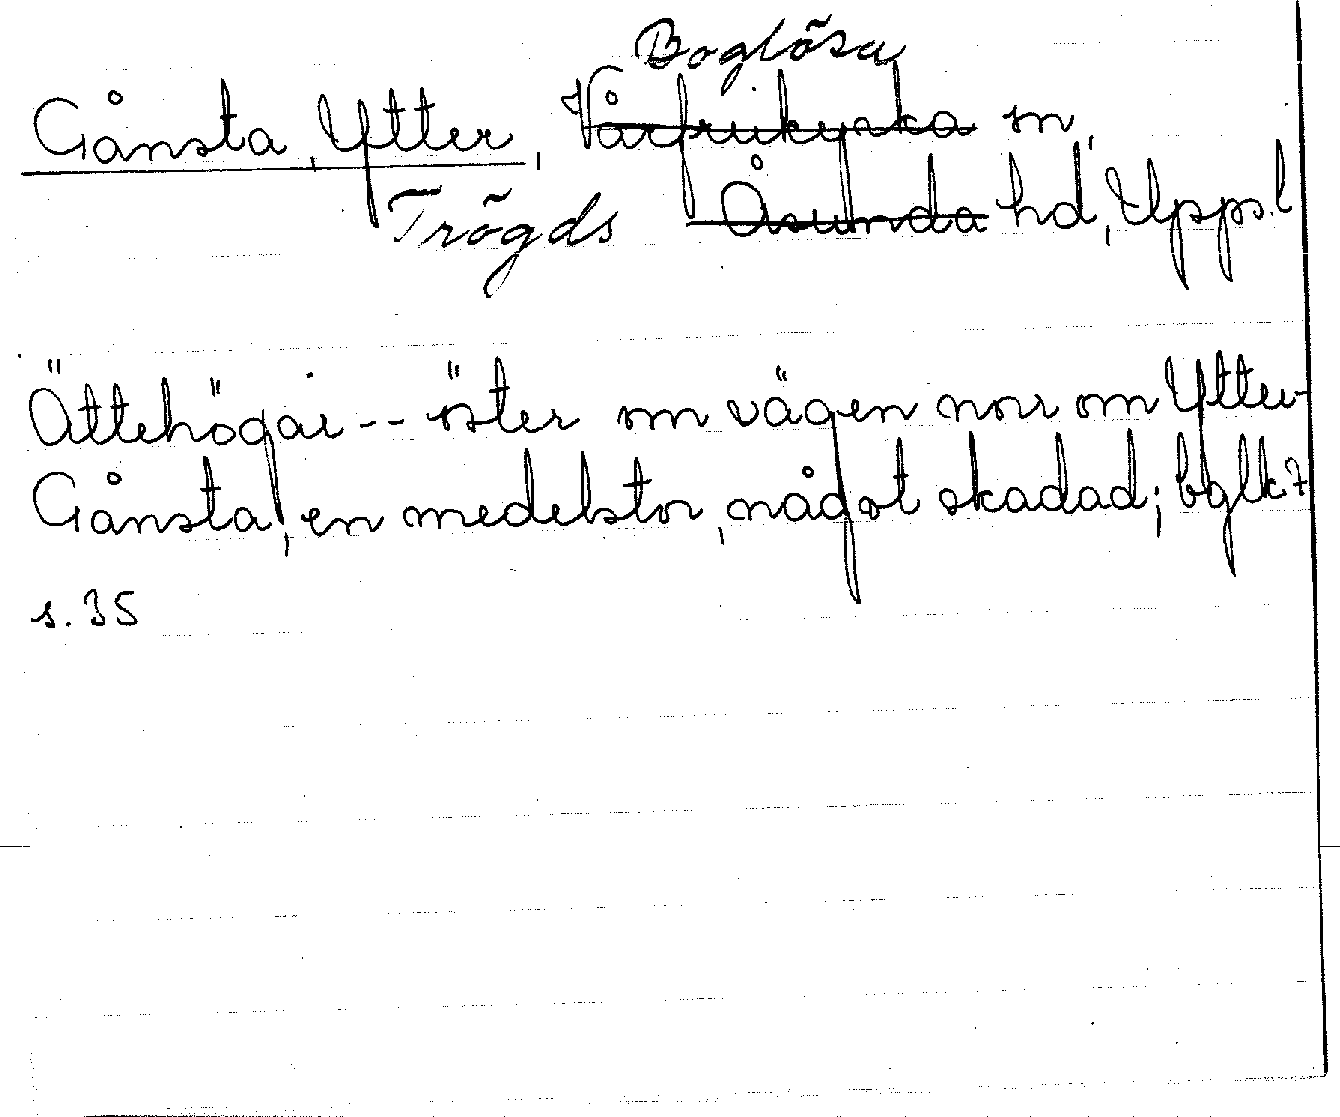 Boglösa
Gånsta, Ytter, Vårfrukyrka sn,
Trögds Åsunda hd, Uppl
Ättehögar -- öster om vägen norr om Ytter-
Gånsta, en medelstor, något skadad; bglk. 7
s. 35